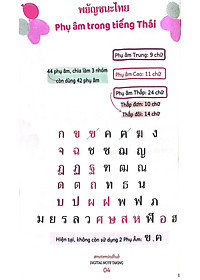 พยัญชนะไทย
Phụ âm trong tiếng Thái
Phụ âm Trung: 9 chữ
44 phụ âm, chia làm 3 nhóm
còn dùng 42 phụ âm
Phụ âm Cao: 11 chữ
Phụ âm Thấp: 24 chữ
Thấp đơn: 10 chữ
Thấp đôi: 14 chữ
ก ข ฃ ค ฅ ฆ ง
จ ฉ ช ซ ฌ ญ
ฎ ฏ ฐ ฑ ฒ ณ
ด ต ถ ท ธ น
บ ป ผ ฝ พ ฟ ภ
ม ย ร ล ว ศ ษ ส ห ฬ อ ฮ
Hiện tại, không còn sử dụng 2 Phụ Âm: ฃ, ฅ
DIGITAL NOTE TAKING
04